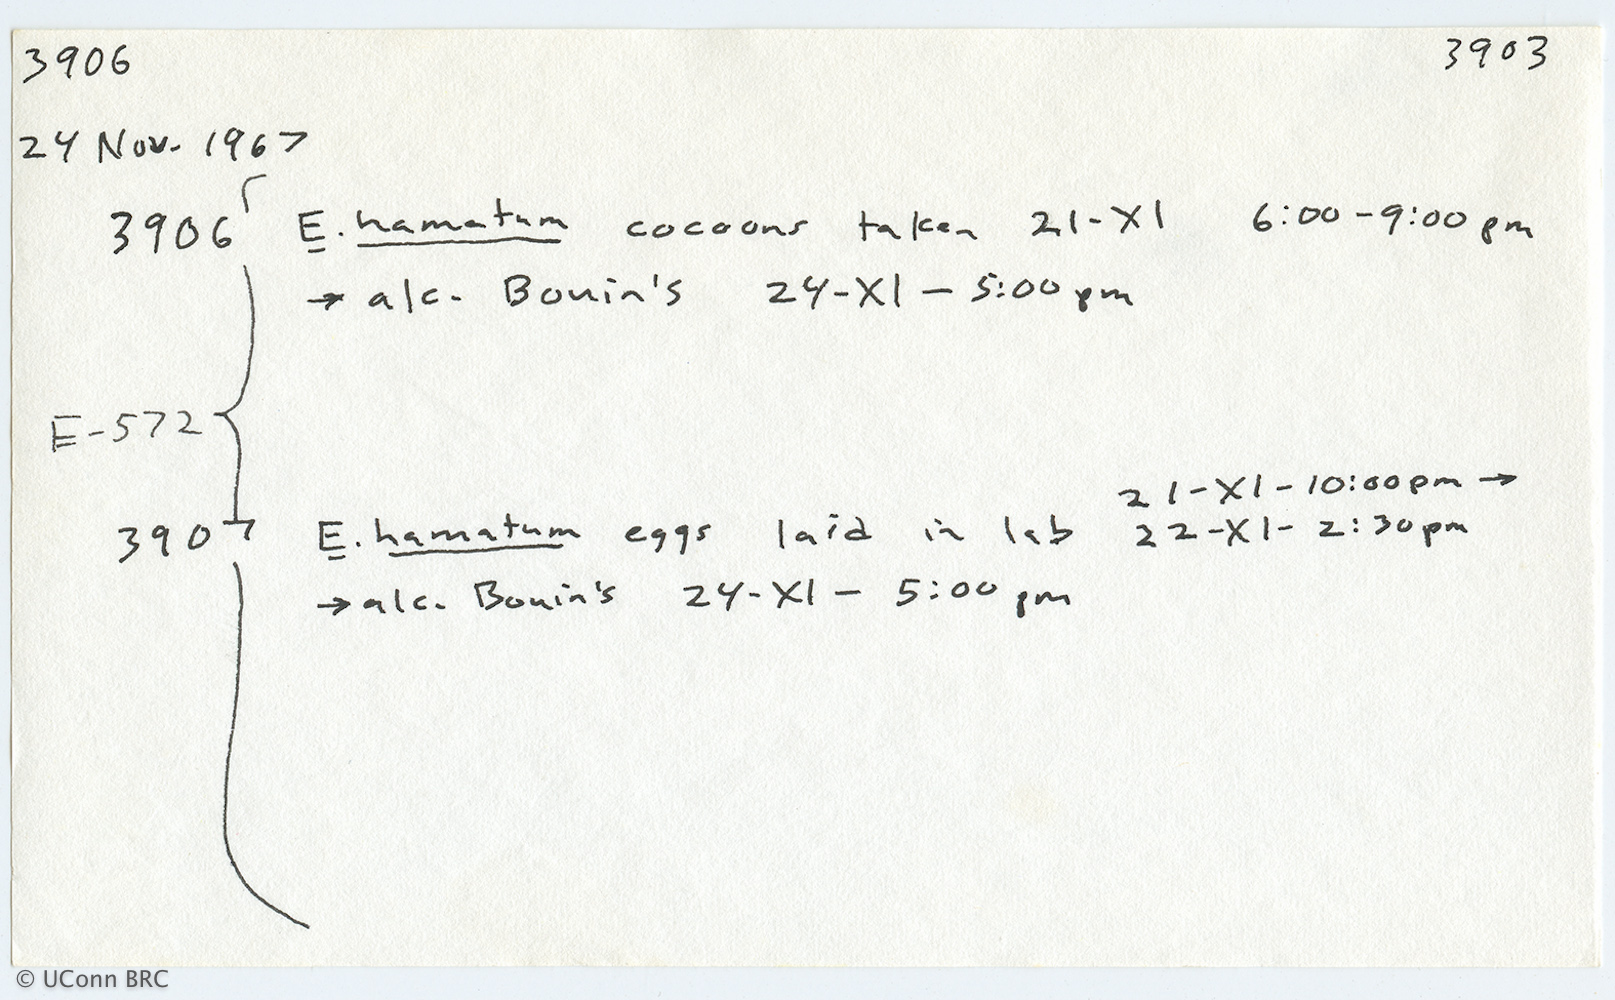 3906 3903
24 Nov. 1967
3906 E. hamatum cocoons taken 21-XI 6:00-9:00 pm
→ alc. Bouin's 24-XI - 5:00 pm
E-572
21-XI-10:00pm →
3907 E. hamatum eggs laid in lab 22-XI- 2:30pm
→ alc. Bouin's 24-XI - 5:00 pm
© UConn BRC